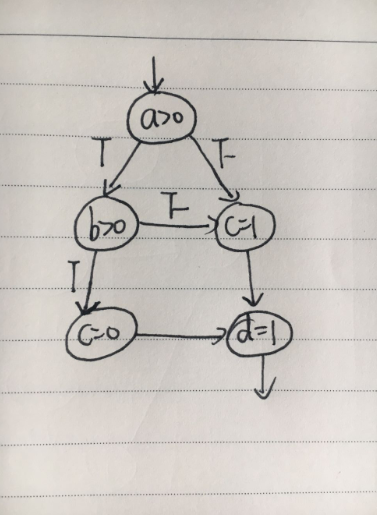 a>0
T F
b>0 F c=1
T
c=0 d=1